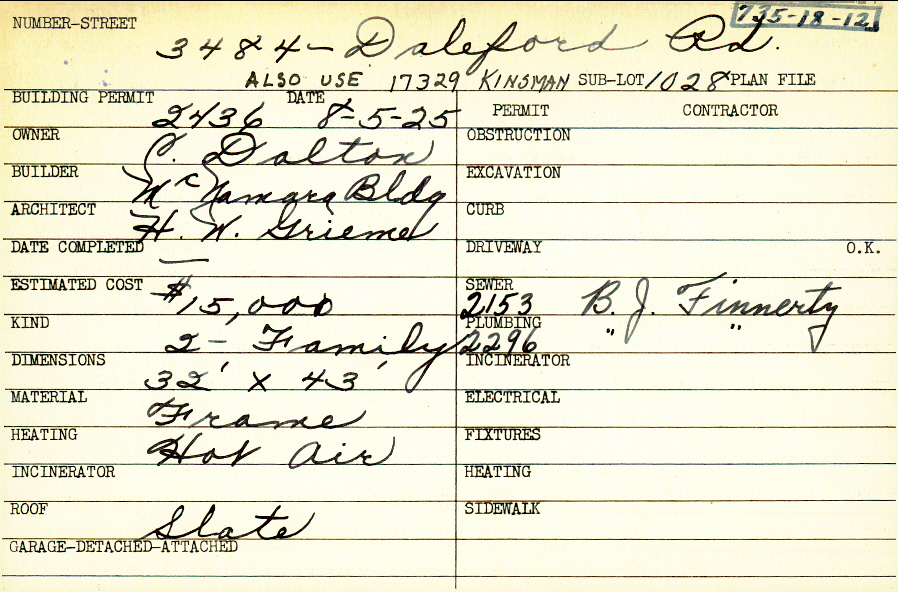 735-18-12
NUMBER-STREET
3484- Daleford Rd.
ALSO USE 17329 KINSMAN SUB-LOT 1028 PLAN FILE
BUILDING PERMIT DATE PERMIT CONTRACTOR
2436 8-5-25
OWNER OBSTRUCTION
C. Dalton
BUILDER EXCAVATION
McNamara Bldg
ARCHITECT CURB
H. W. Grieme
DATE COMPLETED DRIVEWAY O.K.
—
ESTIMATED COST SEWER
$15,000 2153 B. J. Finnerty
KIND PLUMBING
2- Family 2296 " "
DIMENSIONS INCINERATOR
32' x 43'
MATERIAL ELECTRICAL
Frame
HEATING FIXTURES
Hot Air
INCINERATOR HEATING
ROOF SIDEWALK
Slate
GARAGE-DETACHED-ATTACHED